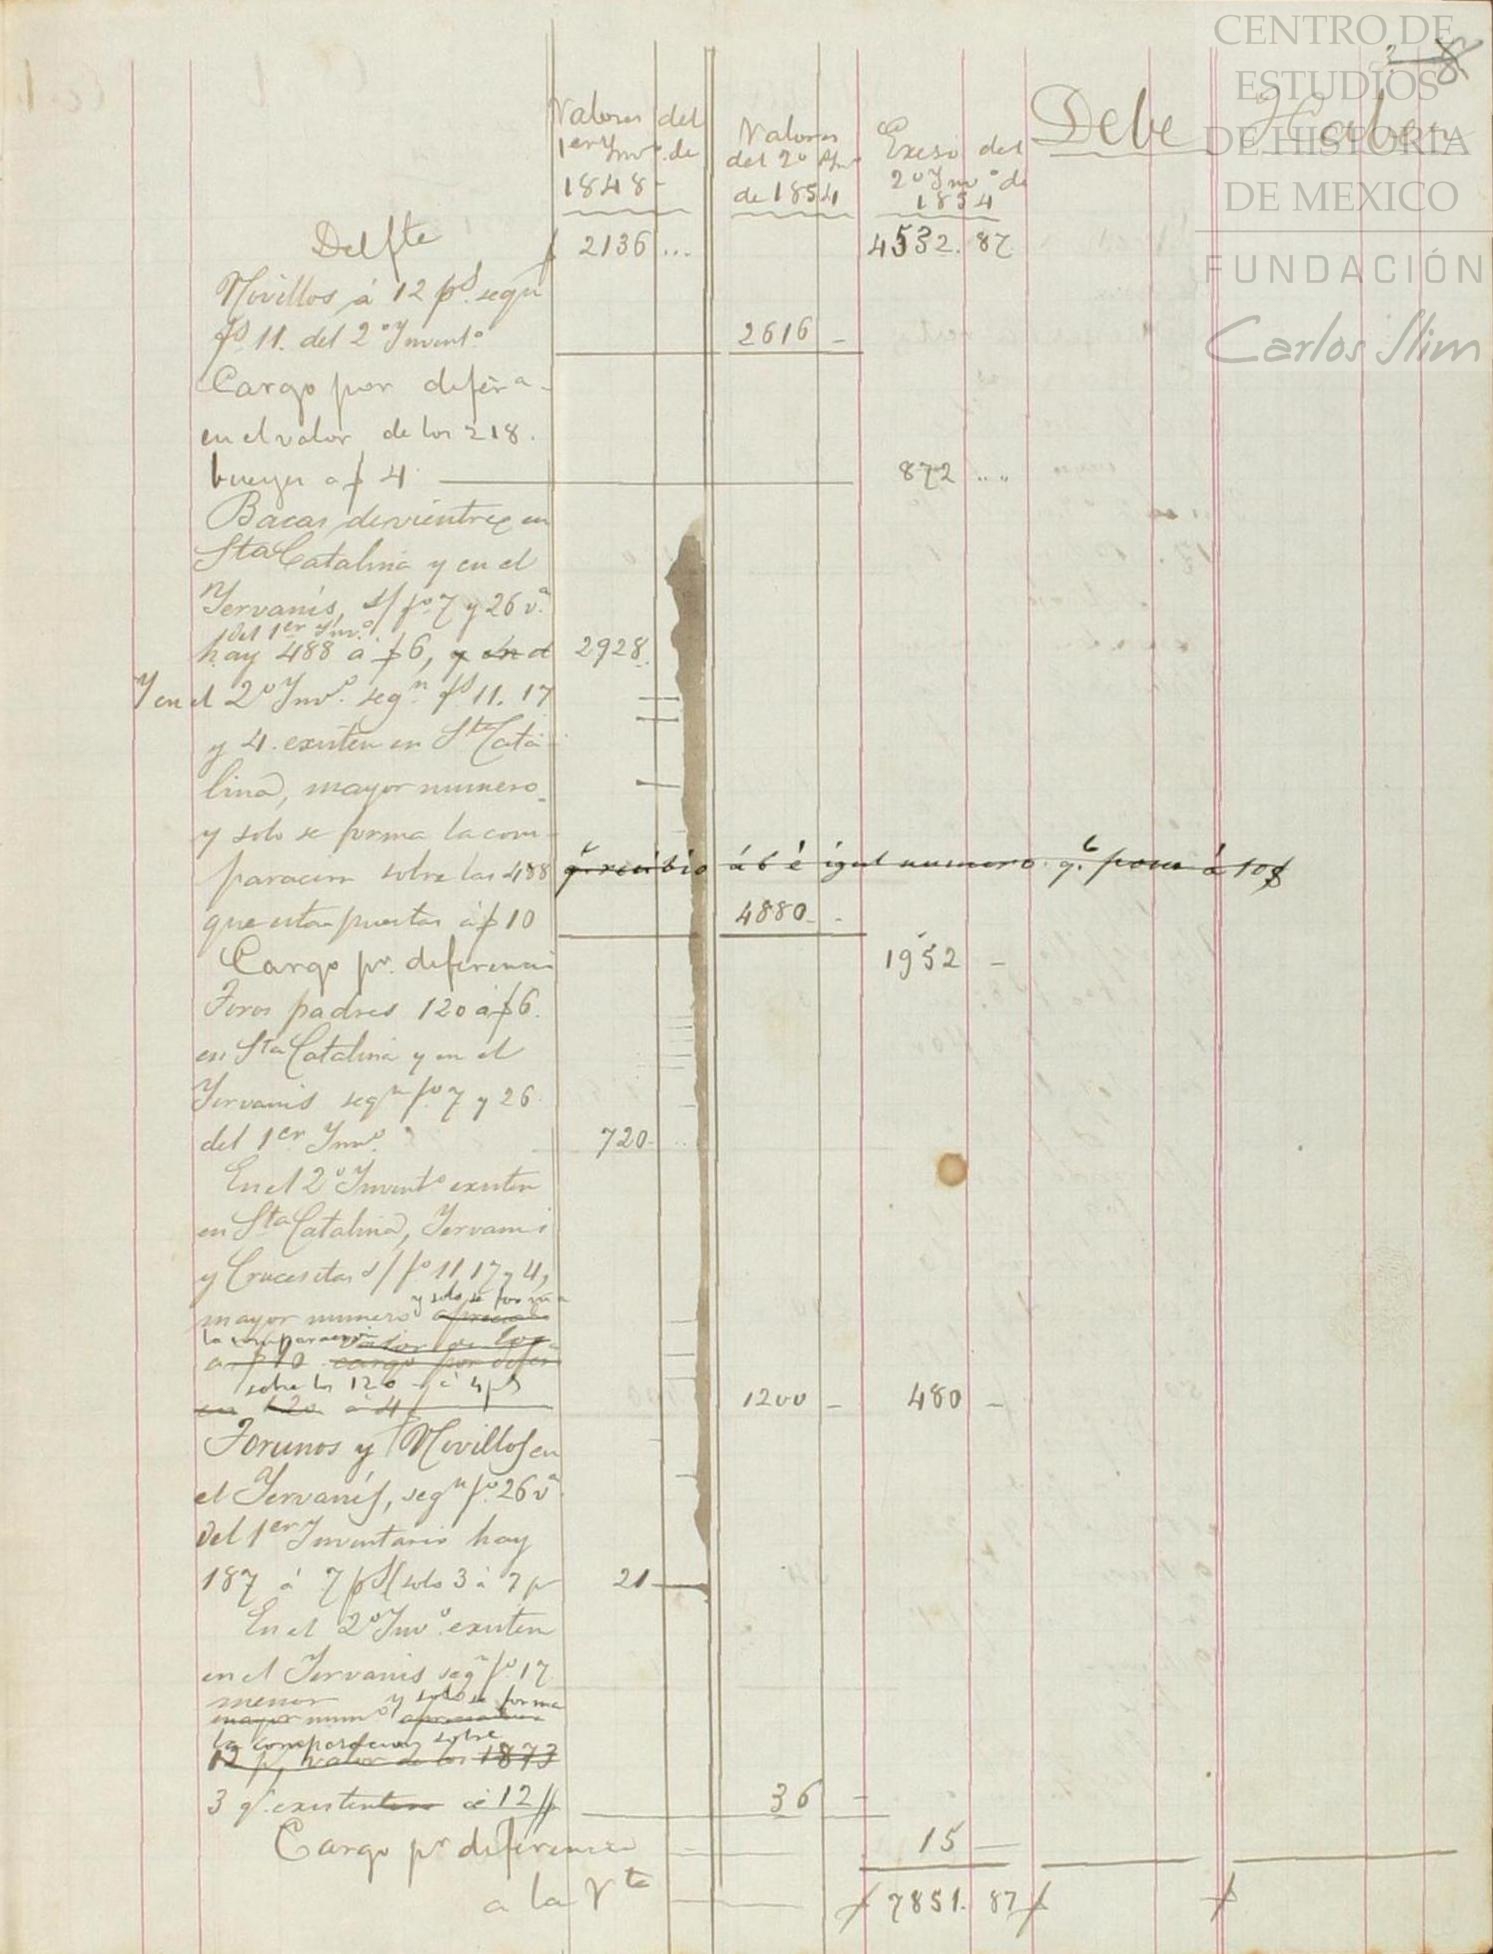 CENTRO DE
ESTUDIOS
DE HISTORIA
DE MEXICO
FUNDACIÓN
Carlos Slim
Valores del
1er Invo. de
1848
Valores
del 2o Inv
de 1854
Exeso del
2o Invo de
1854
Debe
Haber
Del fte $ 2136 ... 4532. 87
Novillos á 12 ps. segn
fs 11. del 2o Invento 2616 -
Cargo por difera.
en el valor de los 218.
bueyes a $ 4 872 ....
Bacas de vientre en
Sta Catalina y en el
Yervanís, s/ fo. 7 y 26 va.
del 1er Invo.
hay 488 á $6, y en el 2928.
Y en el 2o Invo. segn. fs 11. 17
y 4. existen en Sta Cata
lina, mayor numero
y solo se forma la com
paracion sobre las 488 qe. recibió á 6 é igual numero. qe. pone á 10 $
que estan puestas á $ 10 4880 - -
Cargo pr. diferencia 1952 -
Toros padres 120 á $6.
en Sta Catalina y en el
Yervanis segn fo. 7 y 26
del 1er Invo. 720 ..
En el 2o Invento existen
en Sta Catalina, Yervanis
y Crucesitas s/ fo 11, 17 y 4,
y solo se forma
mayor numero
la comparacion valor de los
a $10 cargo por difer
sobre los 120 - á 4 ps
en 120 á 4 $ 1200 - 480 -
Torunos y Novillos en
el Yervanís, segn fo. 26 va
del 1er Inventario hay
187 á 7 ps (solo 3 á 7 p 21
En el 2o Invo. existen
en el Yervanis segn fo. 17
menor y solo se forma
mayor numo
la comparacion sobre
12 p, valor de los 1873
3 qe. existen á 12 $ 36 -
Cargo pr diferencia 15 -
a la Vta $ 7851. 87 $ $